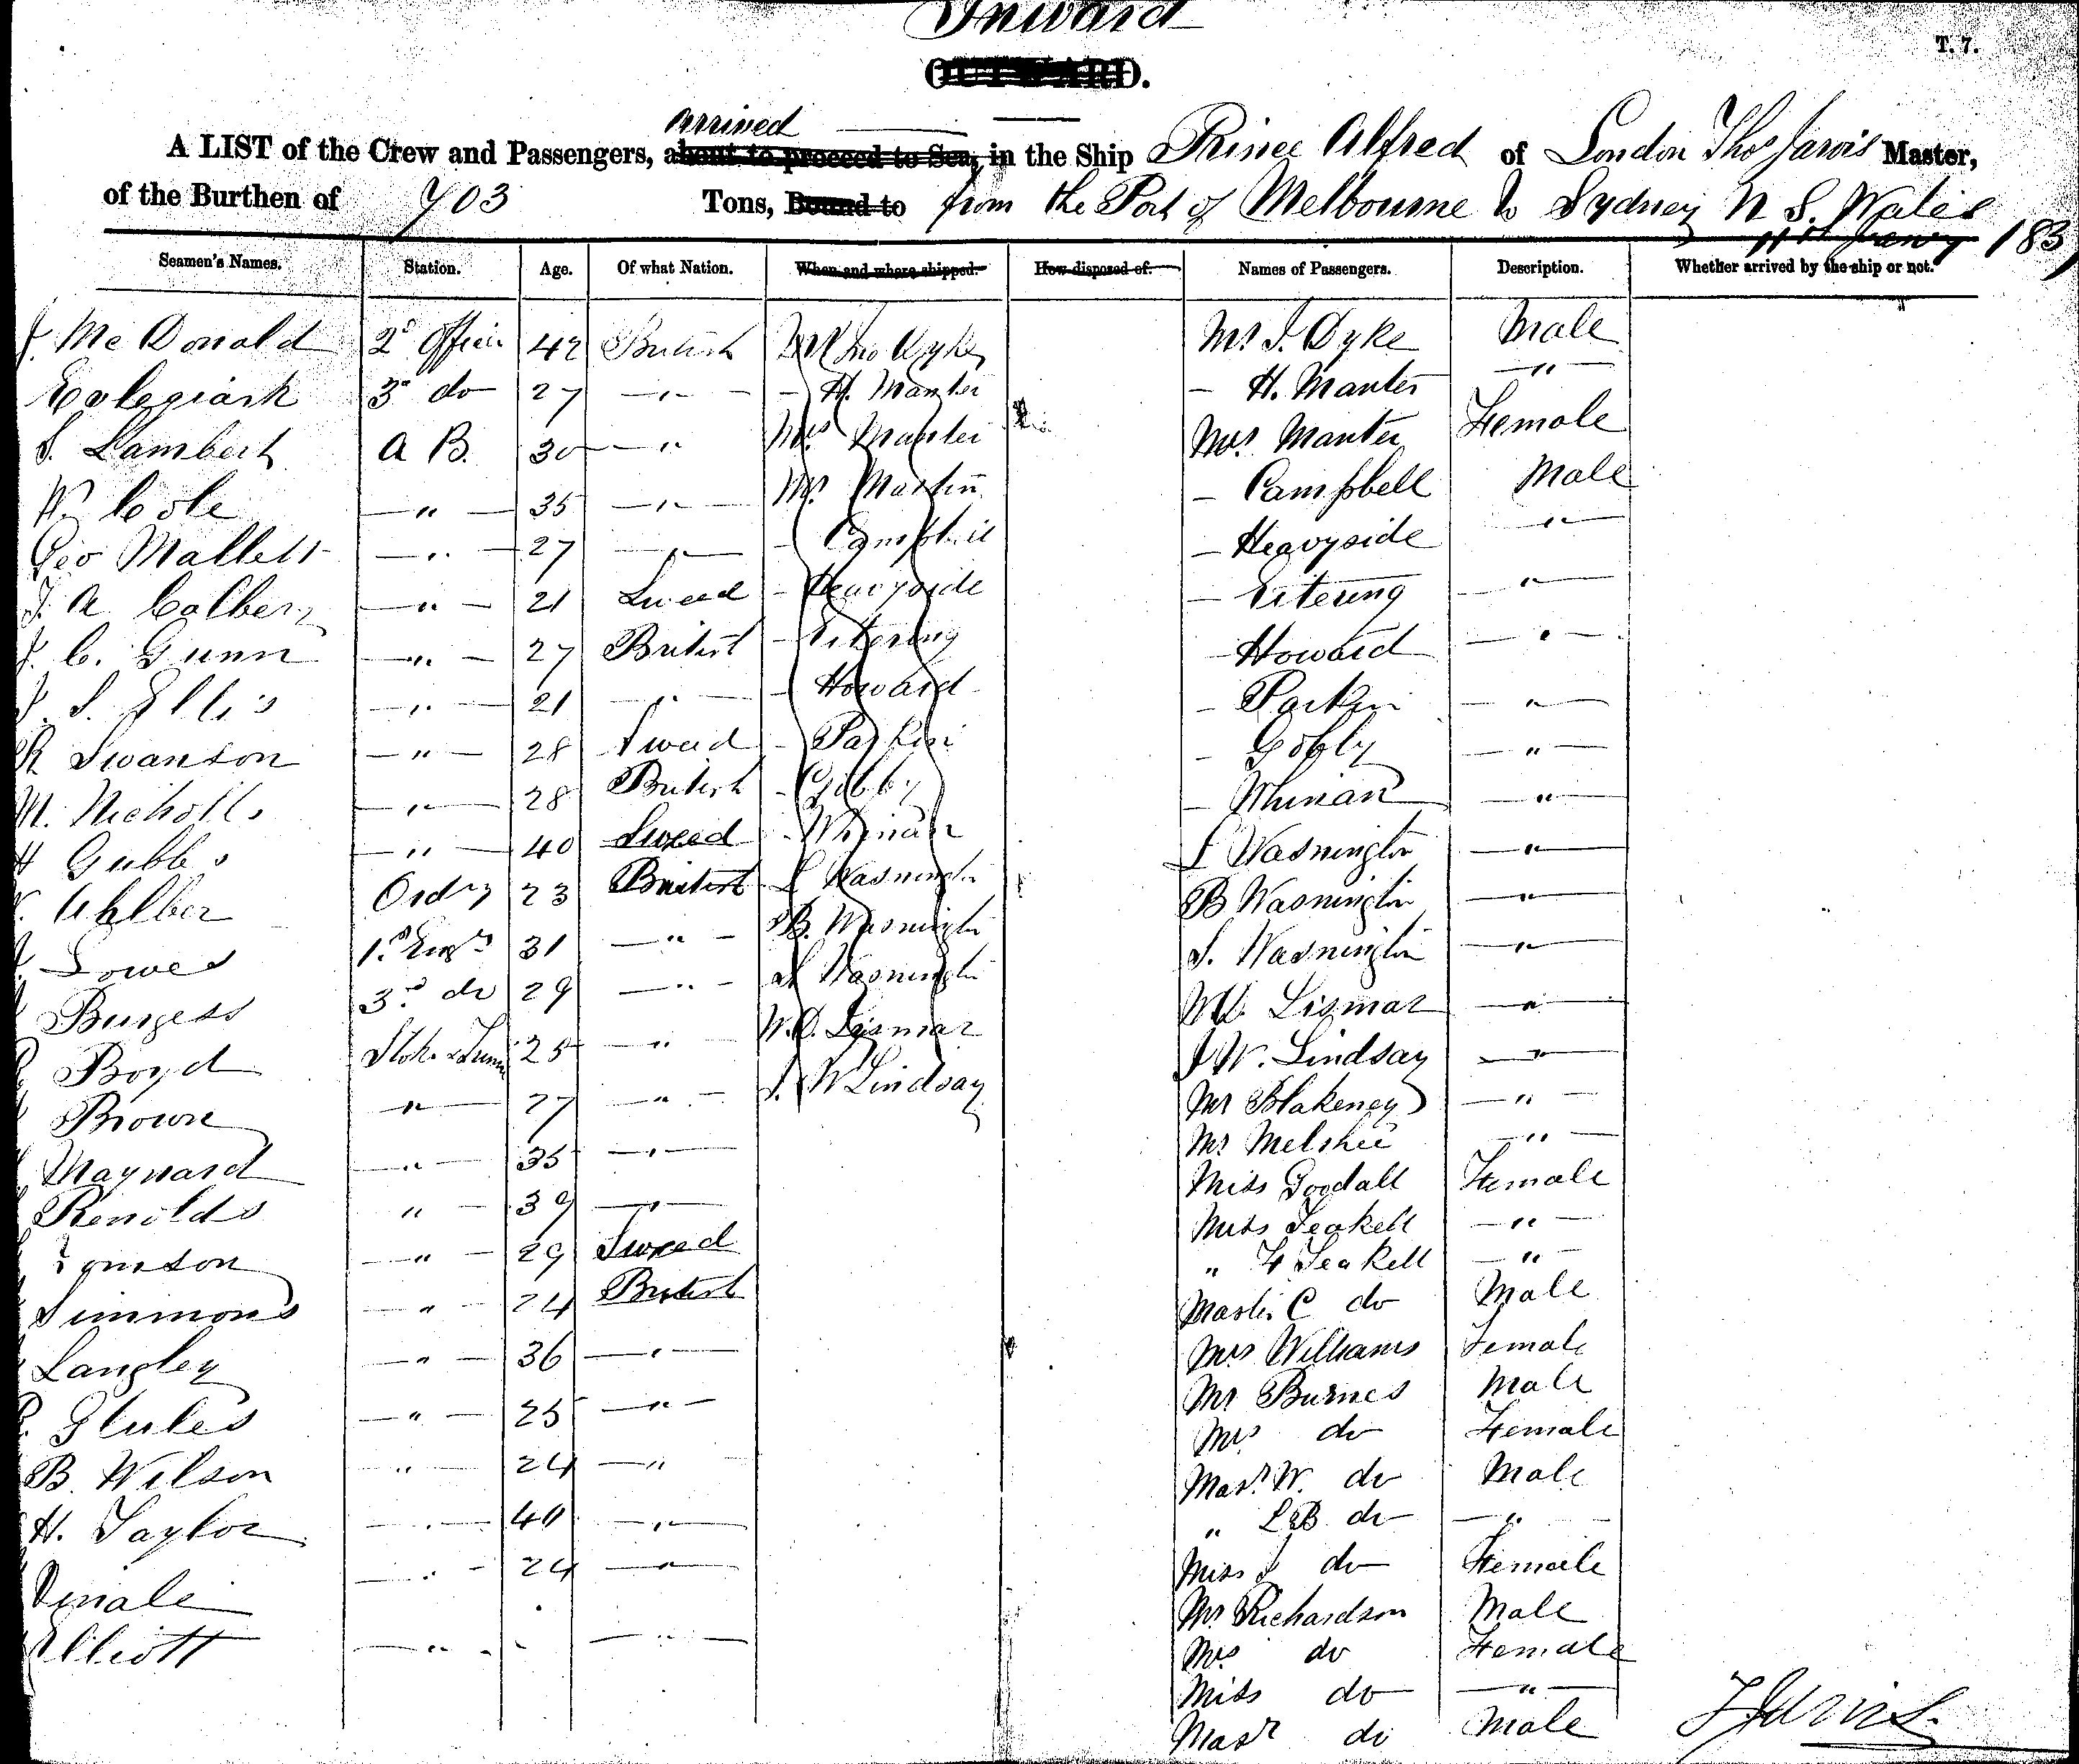 Inward
T. 7.
OUTWARD.
arrived
A LIST of the Crew and Passengers, about to proceed to Sea, in the Ship Prince Alfred of London Thos Jarvis Master,
of the Burthen of 703 Tons, Bound to from the Port of Melbourne to Sydney N S. Wales
183
Seamen's Names. Station. Age. Of what Nation. When and where shipped. How disposed of. Names of Passengers. Description. Whether arrived by the ship or not.
J. Mc Donald 2d Officer 42 British Mr Jno Dyke Mr J. Dyke Male
3d do 27 — " — - H. Manter — H. Manter — " —
S. Lambert A B. 30 — " Mrs Manter Mrs Manter Female
W. Cole — " — 35 — " — Mr Martin — Campbell Male
Geo Mallett — " — 27 — " — - Campbell — Heavyside — " —
J. A. — " — 21 Sweed - Heavyside — Vitering — " —
J. C. Gunn — " — 27 British - Vitering — Howard — " —
J. S. Ellis — " — 21 — " — - Howard — Parkin — " —
R Swanson — " — 28 Sweed - Parkin — — " —
M. Nicholls — " — 28 British - Gibby — Whinan — " —
H Gubbs — " — 40 Sweed - Whinan L Wasnington — " —
Ahlber Ordry 23 British L Wasnington B Wasnington — " —
Lowes 1st Engr 31 — " — B. Wasnington S. Wasnington — " —
Burgess 3rd do 29 — " — Wasnington Lismar — " —
Boyd 25 — " — Lismar J W. Lindsay — " —
Brown — " — 27 — " — J. W Lindsay Mr Blakeney — " —
Maynard — " — 35 — " — Mr — " —
Renolds " — 39 — " — Miss Goodall Female
— " — 29 Sweed Miss Seakell — " —
Simmons — " — 24 British " F Seakell — " —
Langley — " — 36 — " — Master C do Male
— " — 25 — " — Mrs Williams Female
B. Wilson " — 24 — " Mr Burnes Male
H. Taylor — " — 40 — " — Mrs do Female
— " — 24 — " — Masr W. do Male
Elliott — " — — " — " L B. do — " —
Miss J do Female
Mr Richardson Male
Mrs do Female
Miss do — " —
Masr do Male
T Jarvis